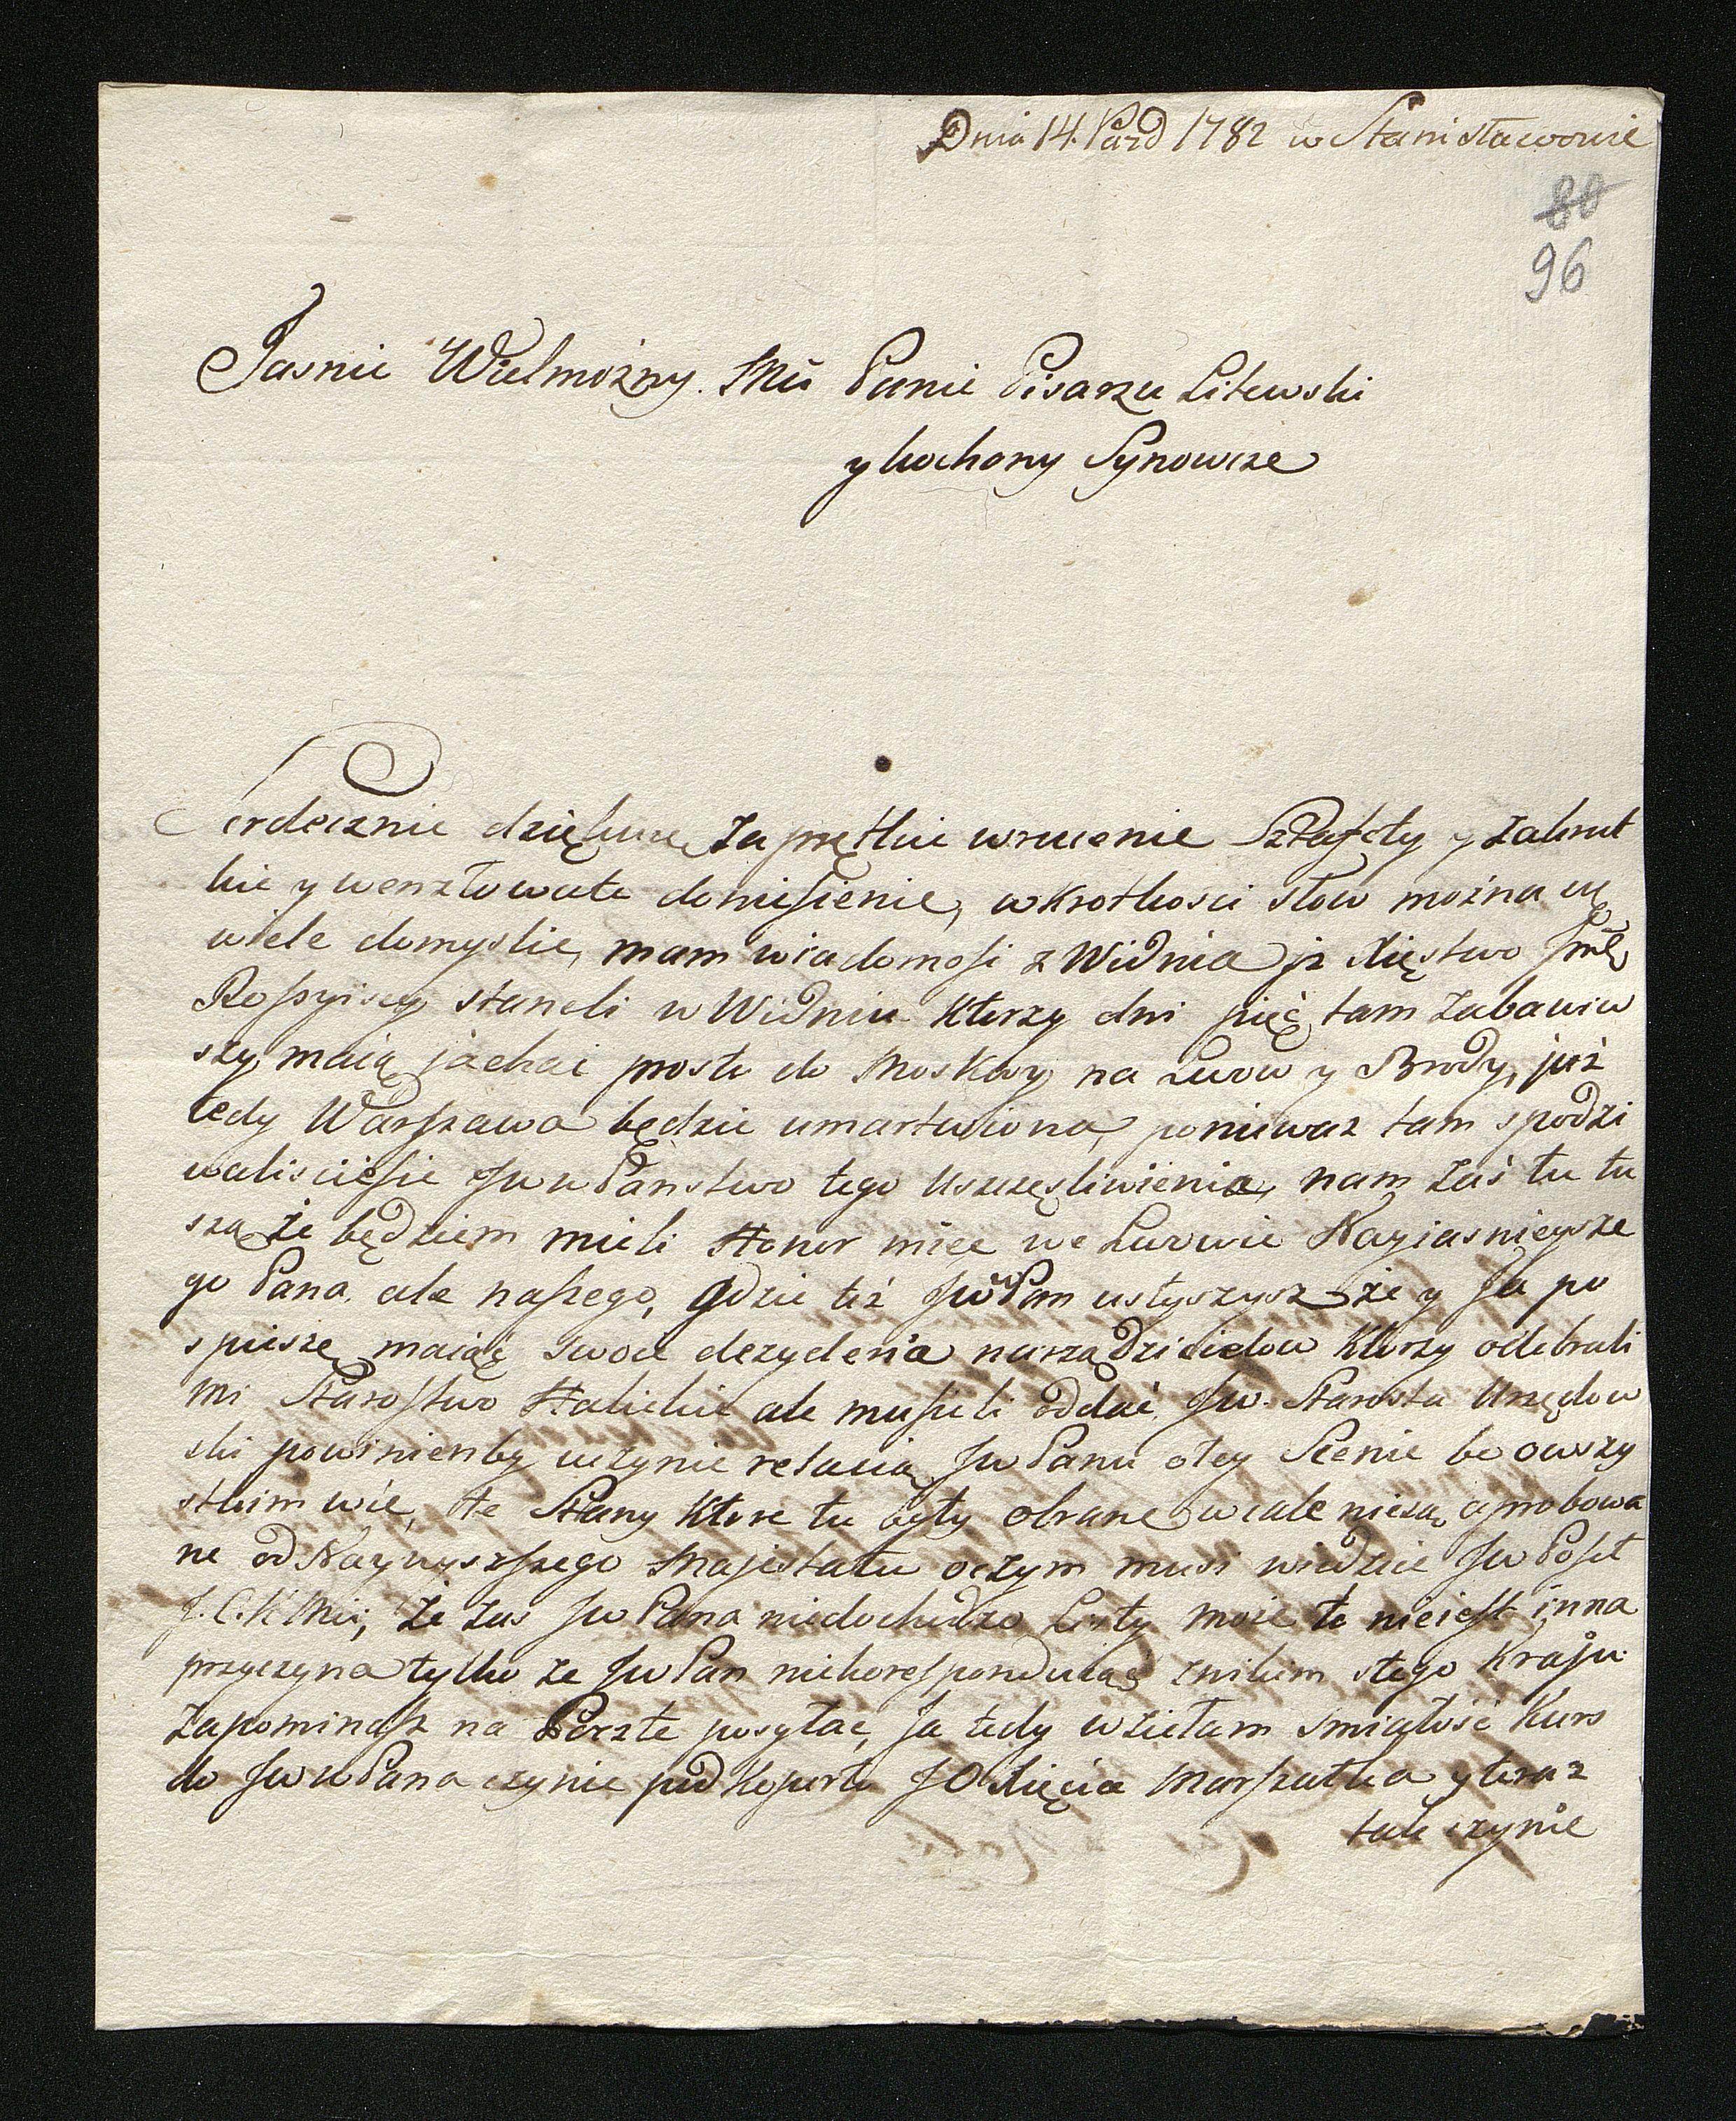 Dnia 14. Pazd 1782 w Stanisławowie
80
96
Jasnie Wielmożny Mci Panie Pisarzu Litewski
y kochany Synowcze
Serdecznie dziękuię za prętkie wrucenie Sztafety y zakrut
kie y wenzłowate doniesienie, w Krotkosci słow można się
wiele domyslic, mam wiadomosć z Widnia jż Xięstwo Jmć
Rossyiscy staneli w Widniu Ktorzy dni pięć tam zabawiw
szy maią jachać prosto do Moskwy na Lwow y Brody, już
tedy Warszawa będzie umartwiona, poniewaz tam spodzi
waliscie sie Jww Państwo tego Uszczęsliwienia, nam zaś tu tu
szą że będziem mieli Honor miec we Lwowie Nayiasnieysze
go Pana ale naszego, gdzie też JwwPan usłyszysz że y Ja po
spieszę maiąć swoie dezyderia na rządzicielow Ktorzy odebrali
mi Starostwo Halickie ale musieli oddać Jw. Starosta Urzędow
ski powinienby uczynic relacią Jw Panu o tey Scenie bo o wszy
stkim wie, te Stany Ktore tu były obrane wcale niesą aprobowa
ne od Naywyszszego Majestatu oczym musi wiedzic Jw Poseł
J. C. K Mci, że zas Jw Pana niedochodzą Listy może to nieiest inna
przyczyna tylko ze Jw Pan niekorespondując znikim stego Kraju
zapominasz na Poczte posyłac, Ja tedy wziełam smiałość Kurs
do Jww Pana czynic pod Kopertą JO Xięcia Marszałka y teraz
tak czynie